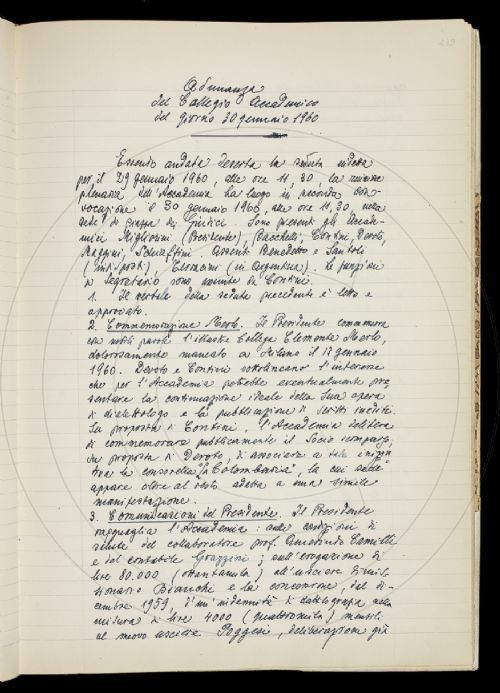 219
Adunanza
del Collegio Accademico
del giorno 30 gennaio 1960
Essendo andata deserta la seduta indetta
per il 29 gennaio 1960, alle ore 11,30, la riunione
plenaria dell'Accademia ha luogo in seconda con-
vocazione il 30 gennaio 1960, alle ore 11,30, nella
sede di piazza dei Giudici. Sono presenti gli Accade-
mici Migliorini (Presidente), Bacchelli, Contini, Devoto,
Maggini, Schiaffini. Assenti Benedetto e Santoli
(indisposti), Terracini (in Argentina). Le funzioni
di Segretario sono assunte da Contini.
1. Il verbale della seduta precedente è letto e
approvato.
2. Commemorazione Merlo. Il Presidente commemora
con nobili parole l'illustre Collega Clemente Merlo,
dolorosamente mancato a Milano il 17 gennaio
1960. Devoto e Contini sottolineano l'interesse
che per l'Accademia potrebbe eventualmente pre-
sentare la continuazione ideale della Sua opera
di dialettologo e la pubblicazione di scritti inediti.
Su proposta di Contini, l'Accademia delibera
di commemorare pubblicamente il Socio scomparso;
su proposta di Devoto, di associare a tale
la consorella "La Colombaria", la cui sede
appare oltre al resto adatta a una simile
manifestazione.
3. Comunicazioni del Presidente. Il Presidente
ragguaglia l'Accademia: sulle condizioni di
salute del collaboratore prof. Amerindo Camilli
e del contabile Grazzini; sull'erogazione di
lire 80.000 (ottantamila) all'usciere dimis-
sionario Bianchi e la concessione, dal di-
cembre 1959, d'un'indennità di dattilografia nella
misura di lire 4000 (quattromila) mensili
al nuovo usciere Poggesi, deliberazione già